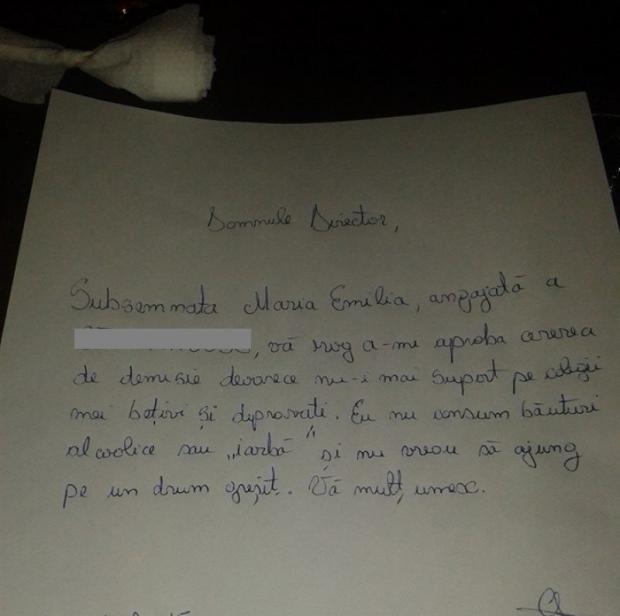 Domnule Director,
Subsemnata Maria Emilia, angajată a
, vă rog a-mi aproba cererea
de demisie deoarece nu-i mai suport pe colegii
mei bețivi și depravați. Eu nu consum băuturi
alcoolice sau „iarbă” și nu vreau să ajung
pe un drum greșit. Vă mulțumesc.